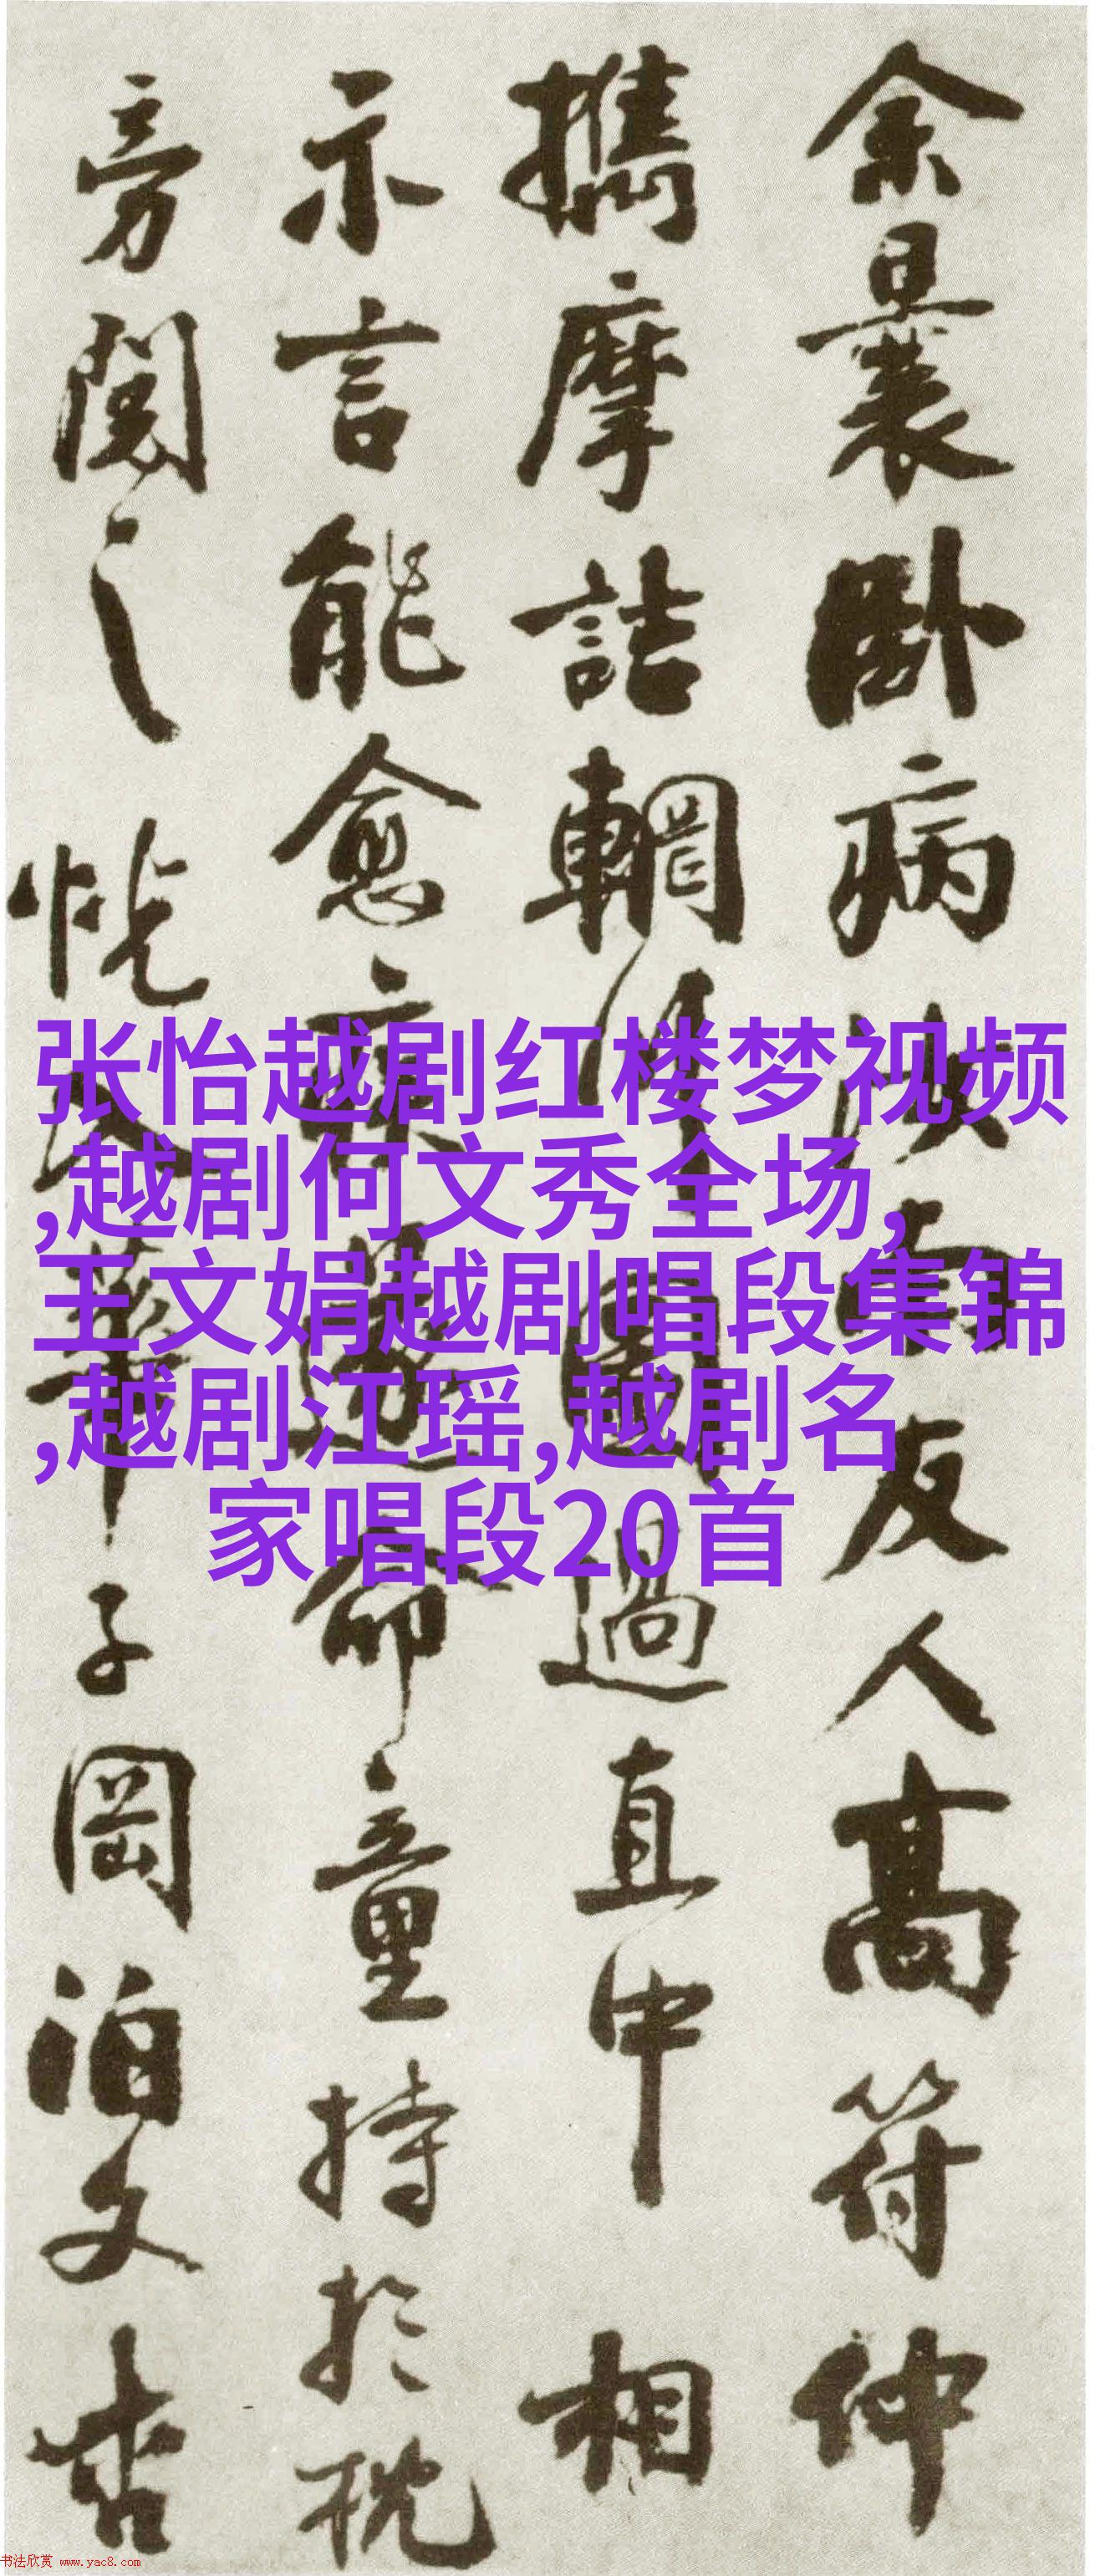 余曩卧病汝南友人高符仲
攜摩詰輞川圖過直中相
示言能愈疾遂命童持於枕
旁閱之恍入華子岡泊文杏
张怡越剧红楼梦视频
,越剧何文秀全场,
王文娟越剧唱段集锦
,越剧江瑶,越剧名
家唱段20首
书法欣赏 www.yac8.com